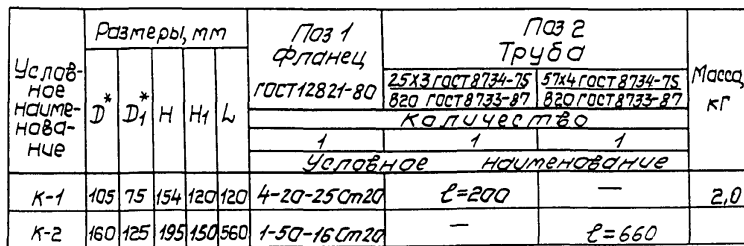 Условное наименование
Размеры, мм
D* D₁* H H₁ L
Поз 1
Фланец
ГОСТ12821-80
Поз 2
Труба
25х3 ГОСТ 8734-75 57х4 ГОСТ 8734-75
В20 ГОСТ 8733-87 В20 ГОСТ 8733-87
Масса, кг
Количество
1 1 1
Условное наименование
К-1 105 75 154 120 120 4-20-25 Ст20 ℓ=200 — 2,0
К-2 160 125 195 150 560 1-50-16 Ст20 — ℓ=660